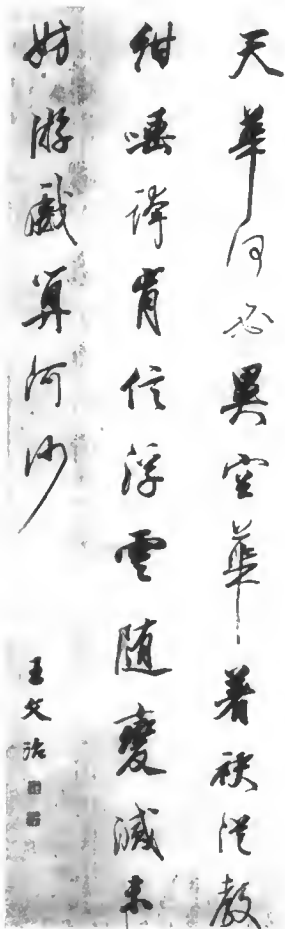 天華何必異空華著袂從教
紺唾譁肯信浮雲隨變滅未
妨游戲算河沙
王文治